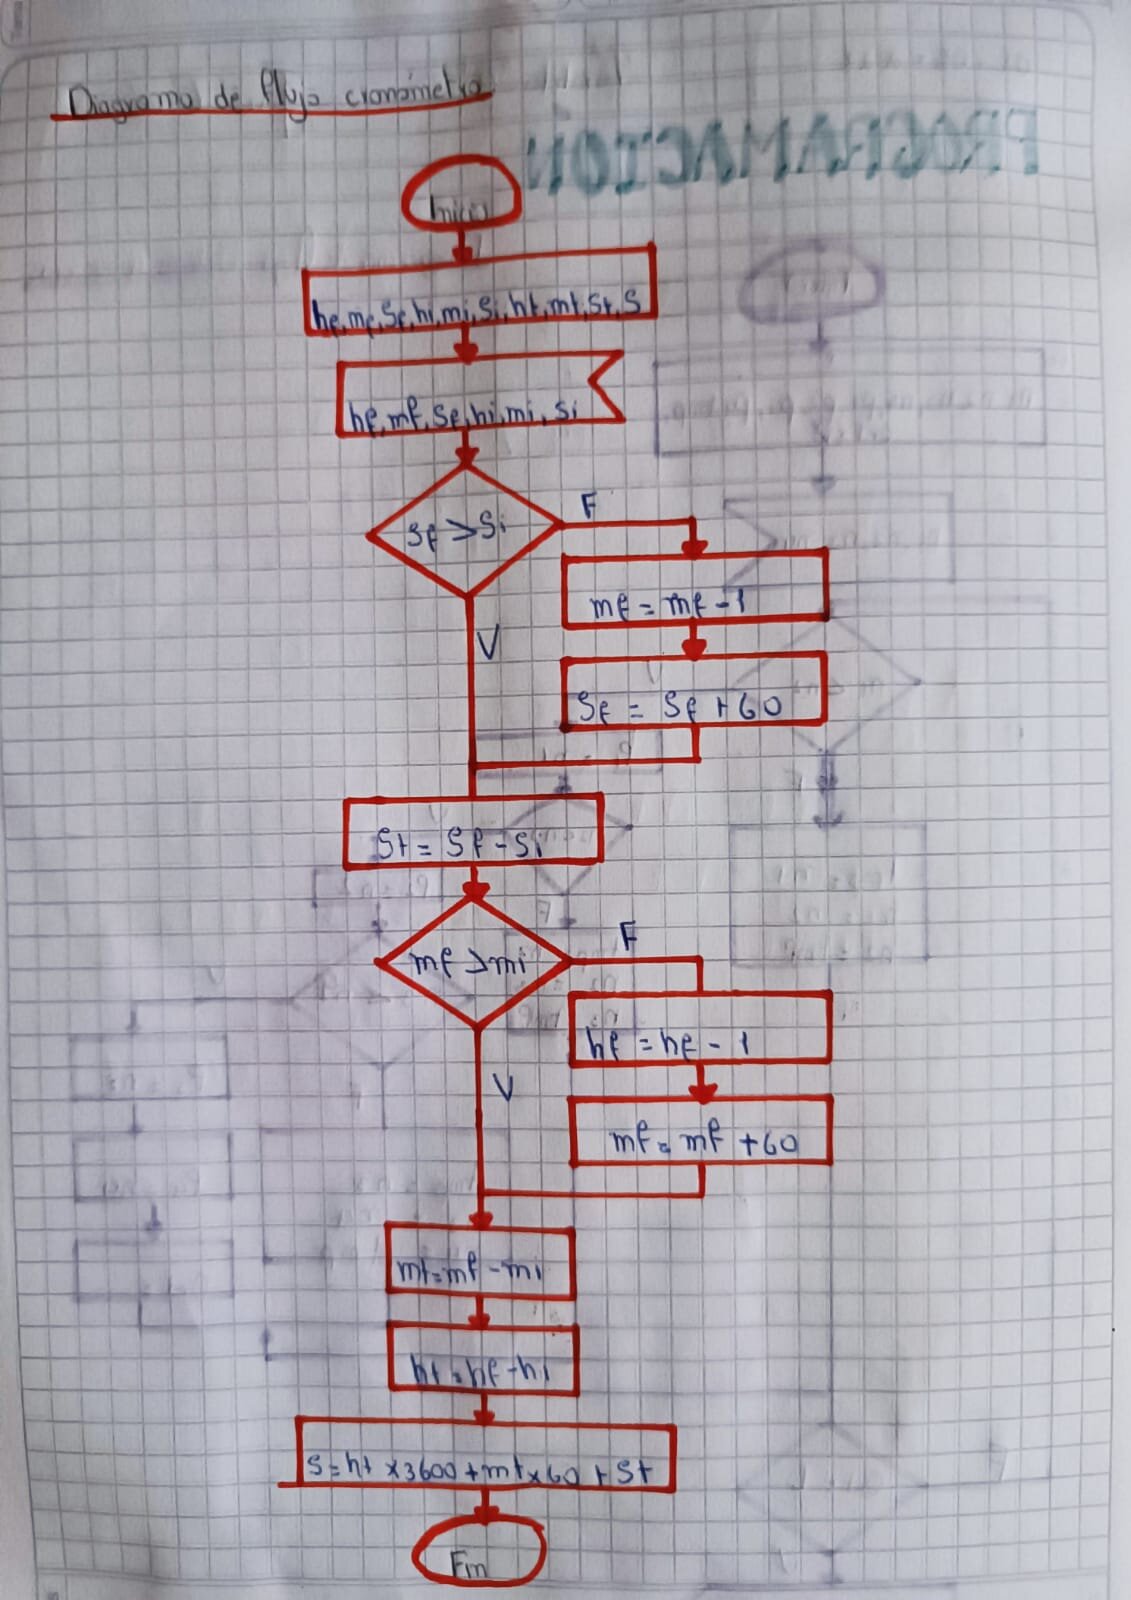 Diagrama de flujo cronómetro
PROGRAMACIÓN
Inicio
hf, mf, Sf, hi, mi, Si, ht, mt, St, S
hf, mf, Sf, hi, mi, si
Sf > Si
F
mf = mf - 1
V
Sf = Sf + 60
St = Sf - Si
F
mf > mi
hf = hf - 1
V
mf = mf + 60
mt = mf - mi
ht = hf - hi
S = ht x 3600 + mt x 60 + St
Fin